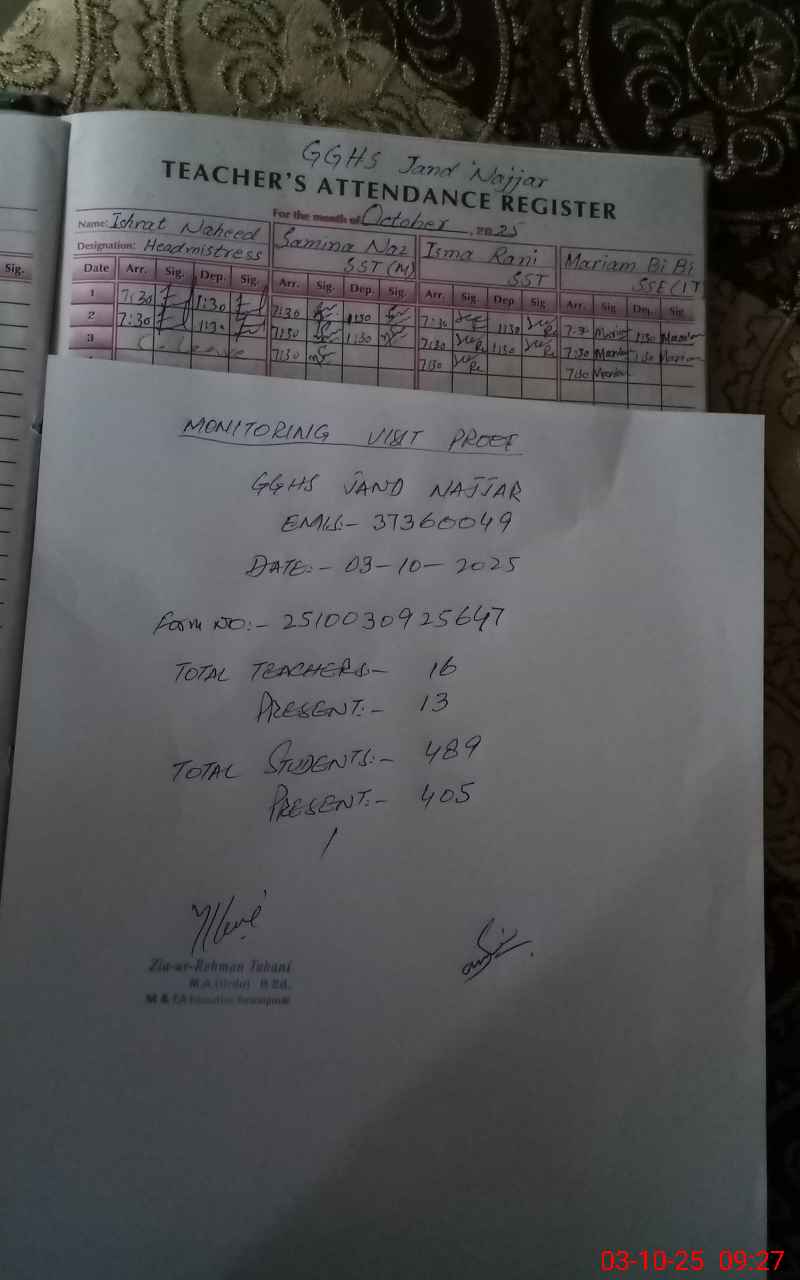 GGHS Jand Najjar
TEACHER'S ATTENDANCE REGISTER
Name: Ishrat Naheed
For the month of October, 2025
Designation: Headmistress
Samina Naz
SST (M)
Isma Rani
SST
Mariam Bi Bi
SSE (IT
Sig.
Date Arr. Sig. Dep. Sig. Arr. Sig. Dep. Sig. Arr. Sig. Dep. Sig. Arr. Sig. Dep. Sig.
1 7:30 1:30 7:30 1:30 7:30 1:30 1:30
2 7:30 1:30 7:30 1:30 7:30 1:30 7:30 1:30
3 C. Leave 7:30 7:30 7:30
MONITORING VISIT PROOF
GGHS JAND NAJJAR
EMIS:- 37360049
DATE:- 03-10-2025
Form NO:- 2510030925647
TOTAL TEACHERS:- 16
PRESENT:- 13
TOTAL STUDENTS:- 489
PRESENT:- 405
Zia-ur-Rehman Tahani
M.A (Urdu) B Ed.
M & EA
03-10-25 09:27